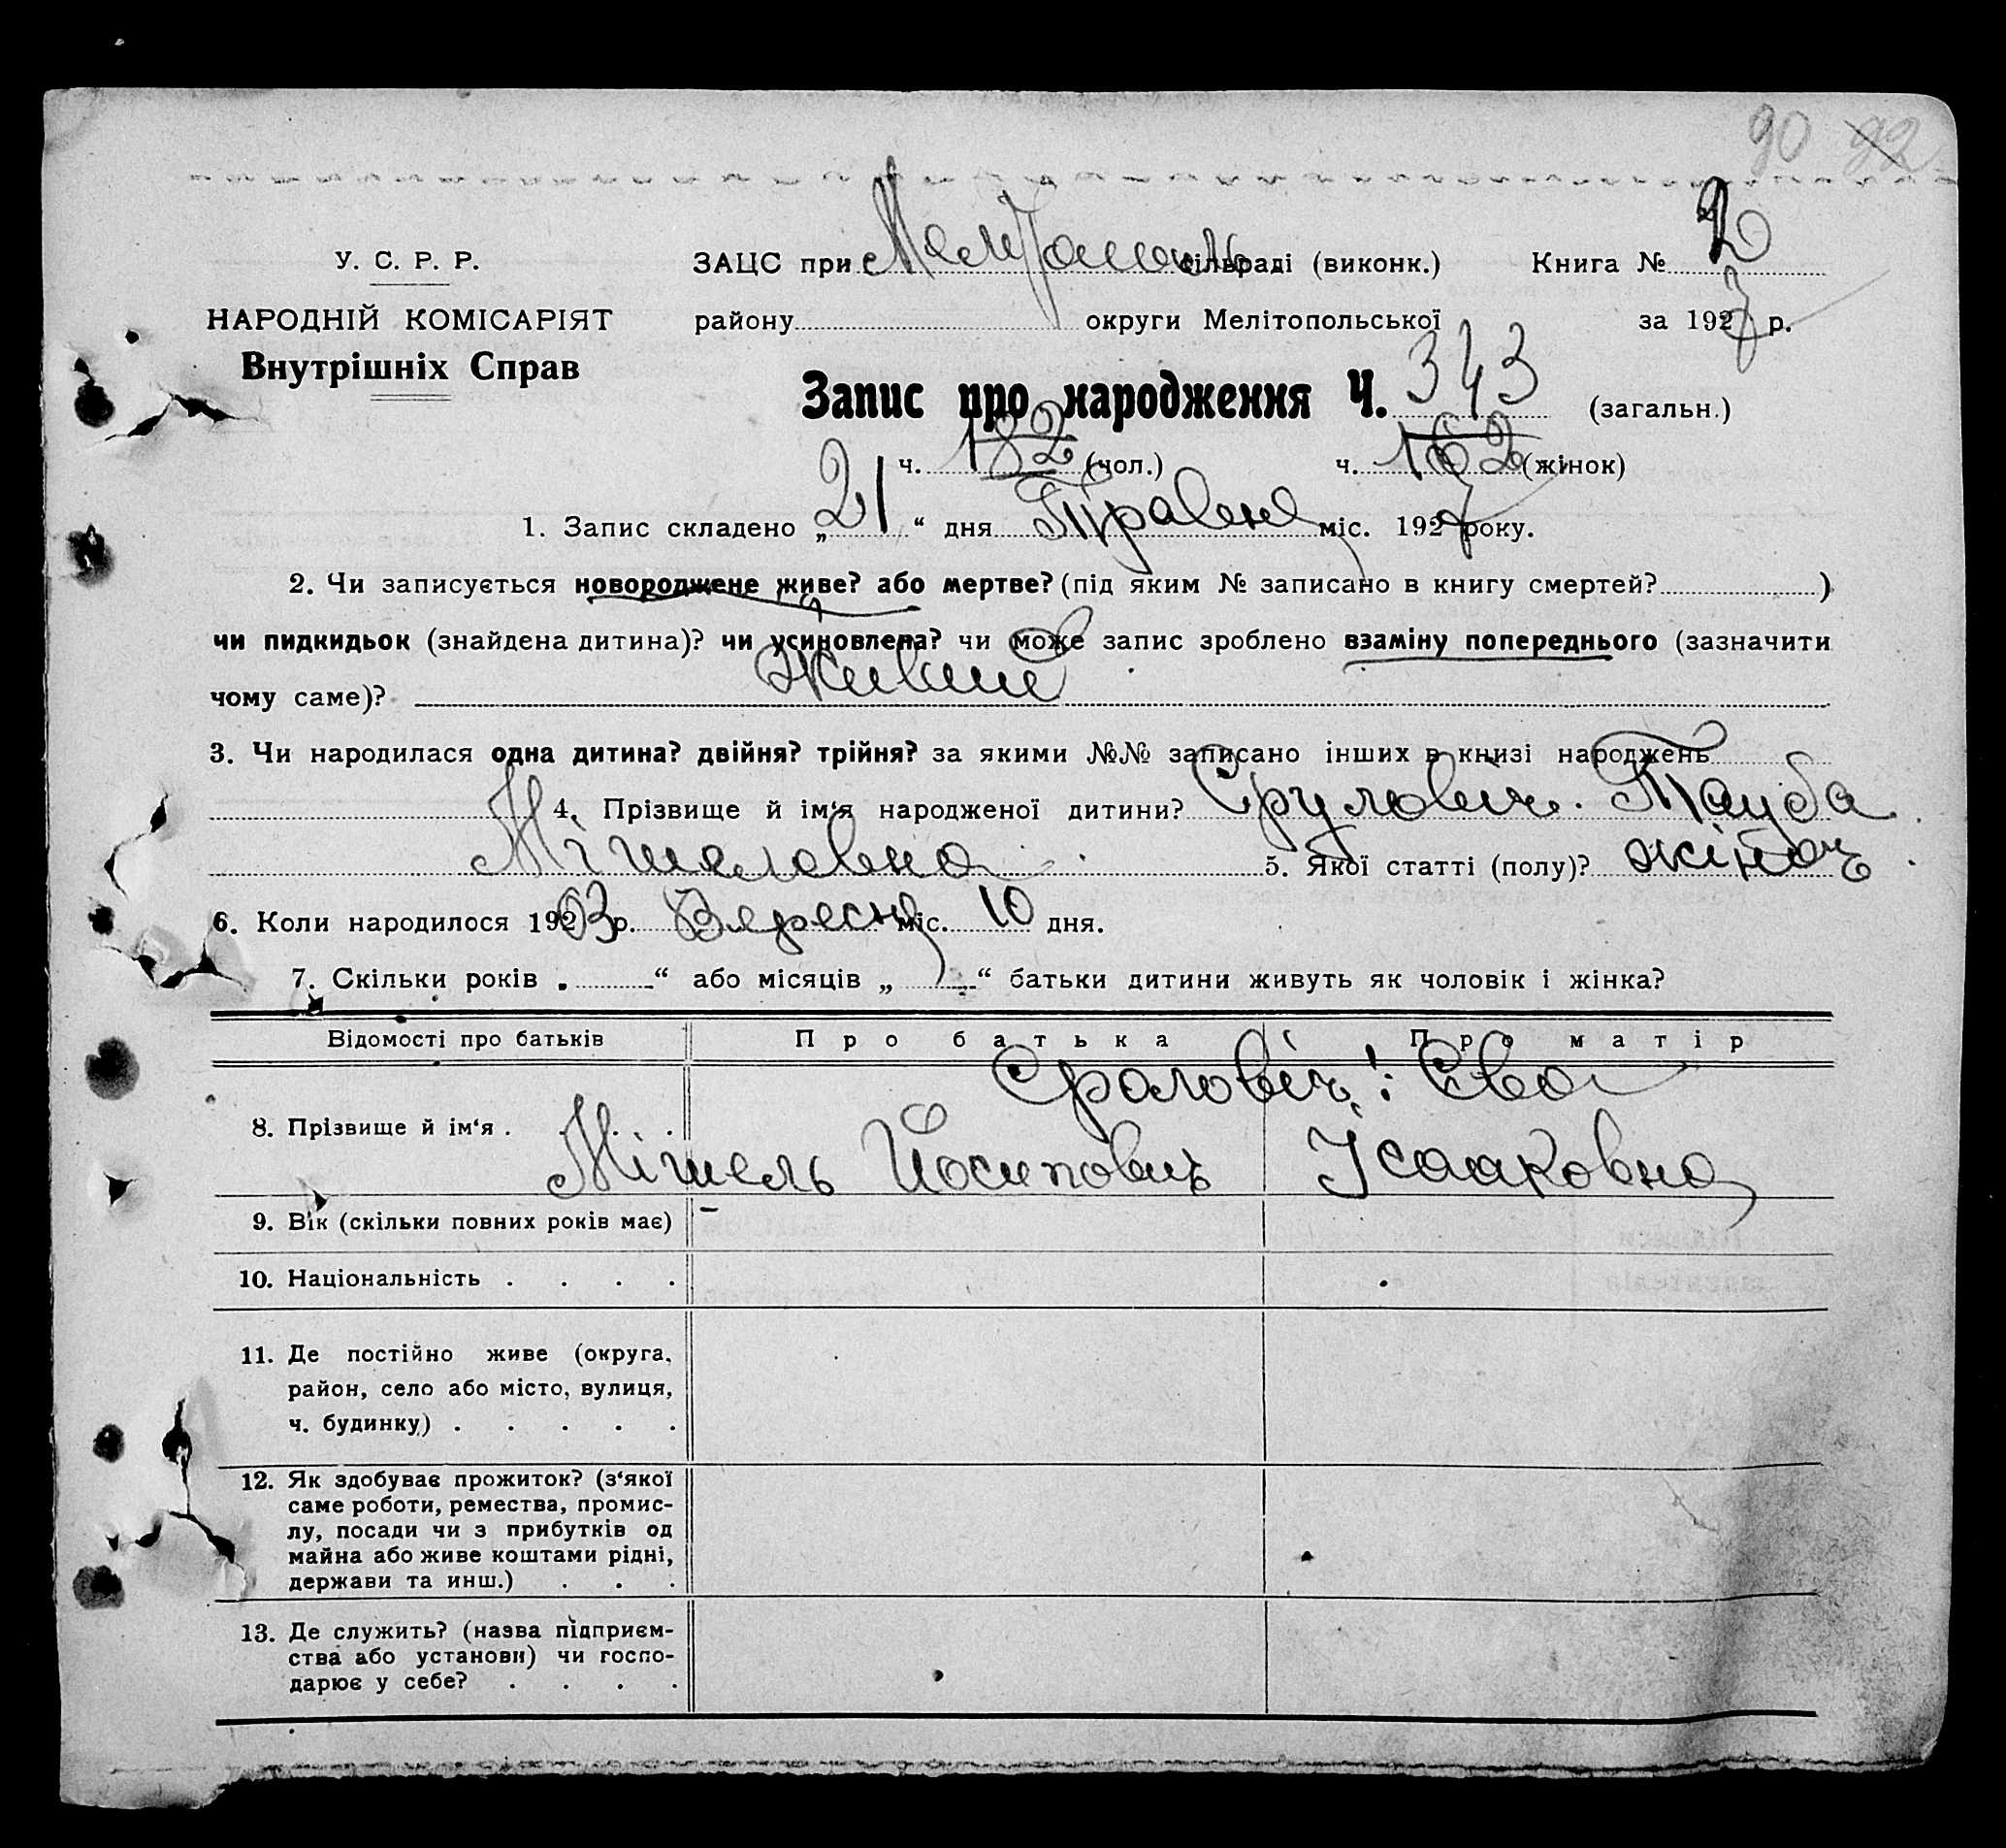 90 92
У. С. Р. Р.
НАРОДНІЙ КОМІСАРІЯТ
Внутрішніх Справ
ЗАЦС при сільраді (виконк.) Книга № 2
району округи Мелітопольської за 1927 р.
Запис про народження Ч. 343 (загальн.)
ч. 182 (чол.) ч. 162 (жінок)
1. Запис складено „21“ дня Травня міс. 1927 року.
2. Чи записується новороджене живе? або мертве? (під яким № записано в книгу смертей? )
чи пидкидьок (знайдена дитина)? чи усиновлена? чи може запис зроблено взаміну попереднього (зазначити
чому саме)?
3. Чи народилася одна дитина? двійня? трійня? за якими №№ записано інших в книзі народжень
4. Прізвище й ім‘я народженої дитини? Срулович. Тауба
Мішелевна 5. Якої статті (полу)? жіноч.
6. Коли народилося 19203 р. Вересня міс. 10 дня.
7. Скільки років „ “ або місяців „ “ батьки дитини живуть як чоловік і жінка?
Відомості про батьків Про батька Про матір
Сраловіч: Ева
8. Прізвище й ім‘я . Мішель Йосипович Ісааковна
9. Вік (скільки повних років має) –
10. Національність . . . .
11. Де постійно живе (округа,
район, село або місто, вулиця,
ч. будинку) . . . . .
12. Як здобуває прожиток? (з‘якої
саме роботи, ремества, промис-
лу, посади чи з прибутків од
майна або живе коштами рідні,
держави та инш.) . . .
13. Де служить? (назва підприєм-
ства або установи) чи госпо-
дарює у себе? . . . .